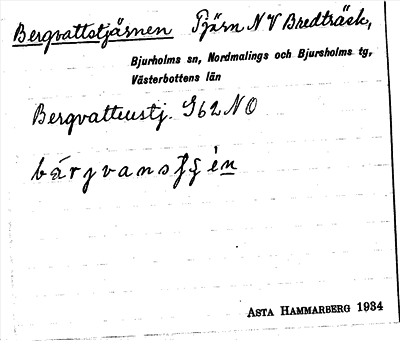 Bergvattstjärnen Tjärn NV Bredträsk,
Bjurholms sn, Nordmalings och Bjurholms tg,
Västerbottens län
Bergvattenstj. 362 NO
ASTA HAMMARBERG 1934